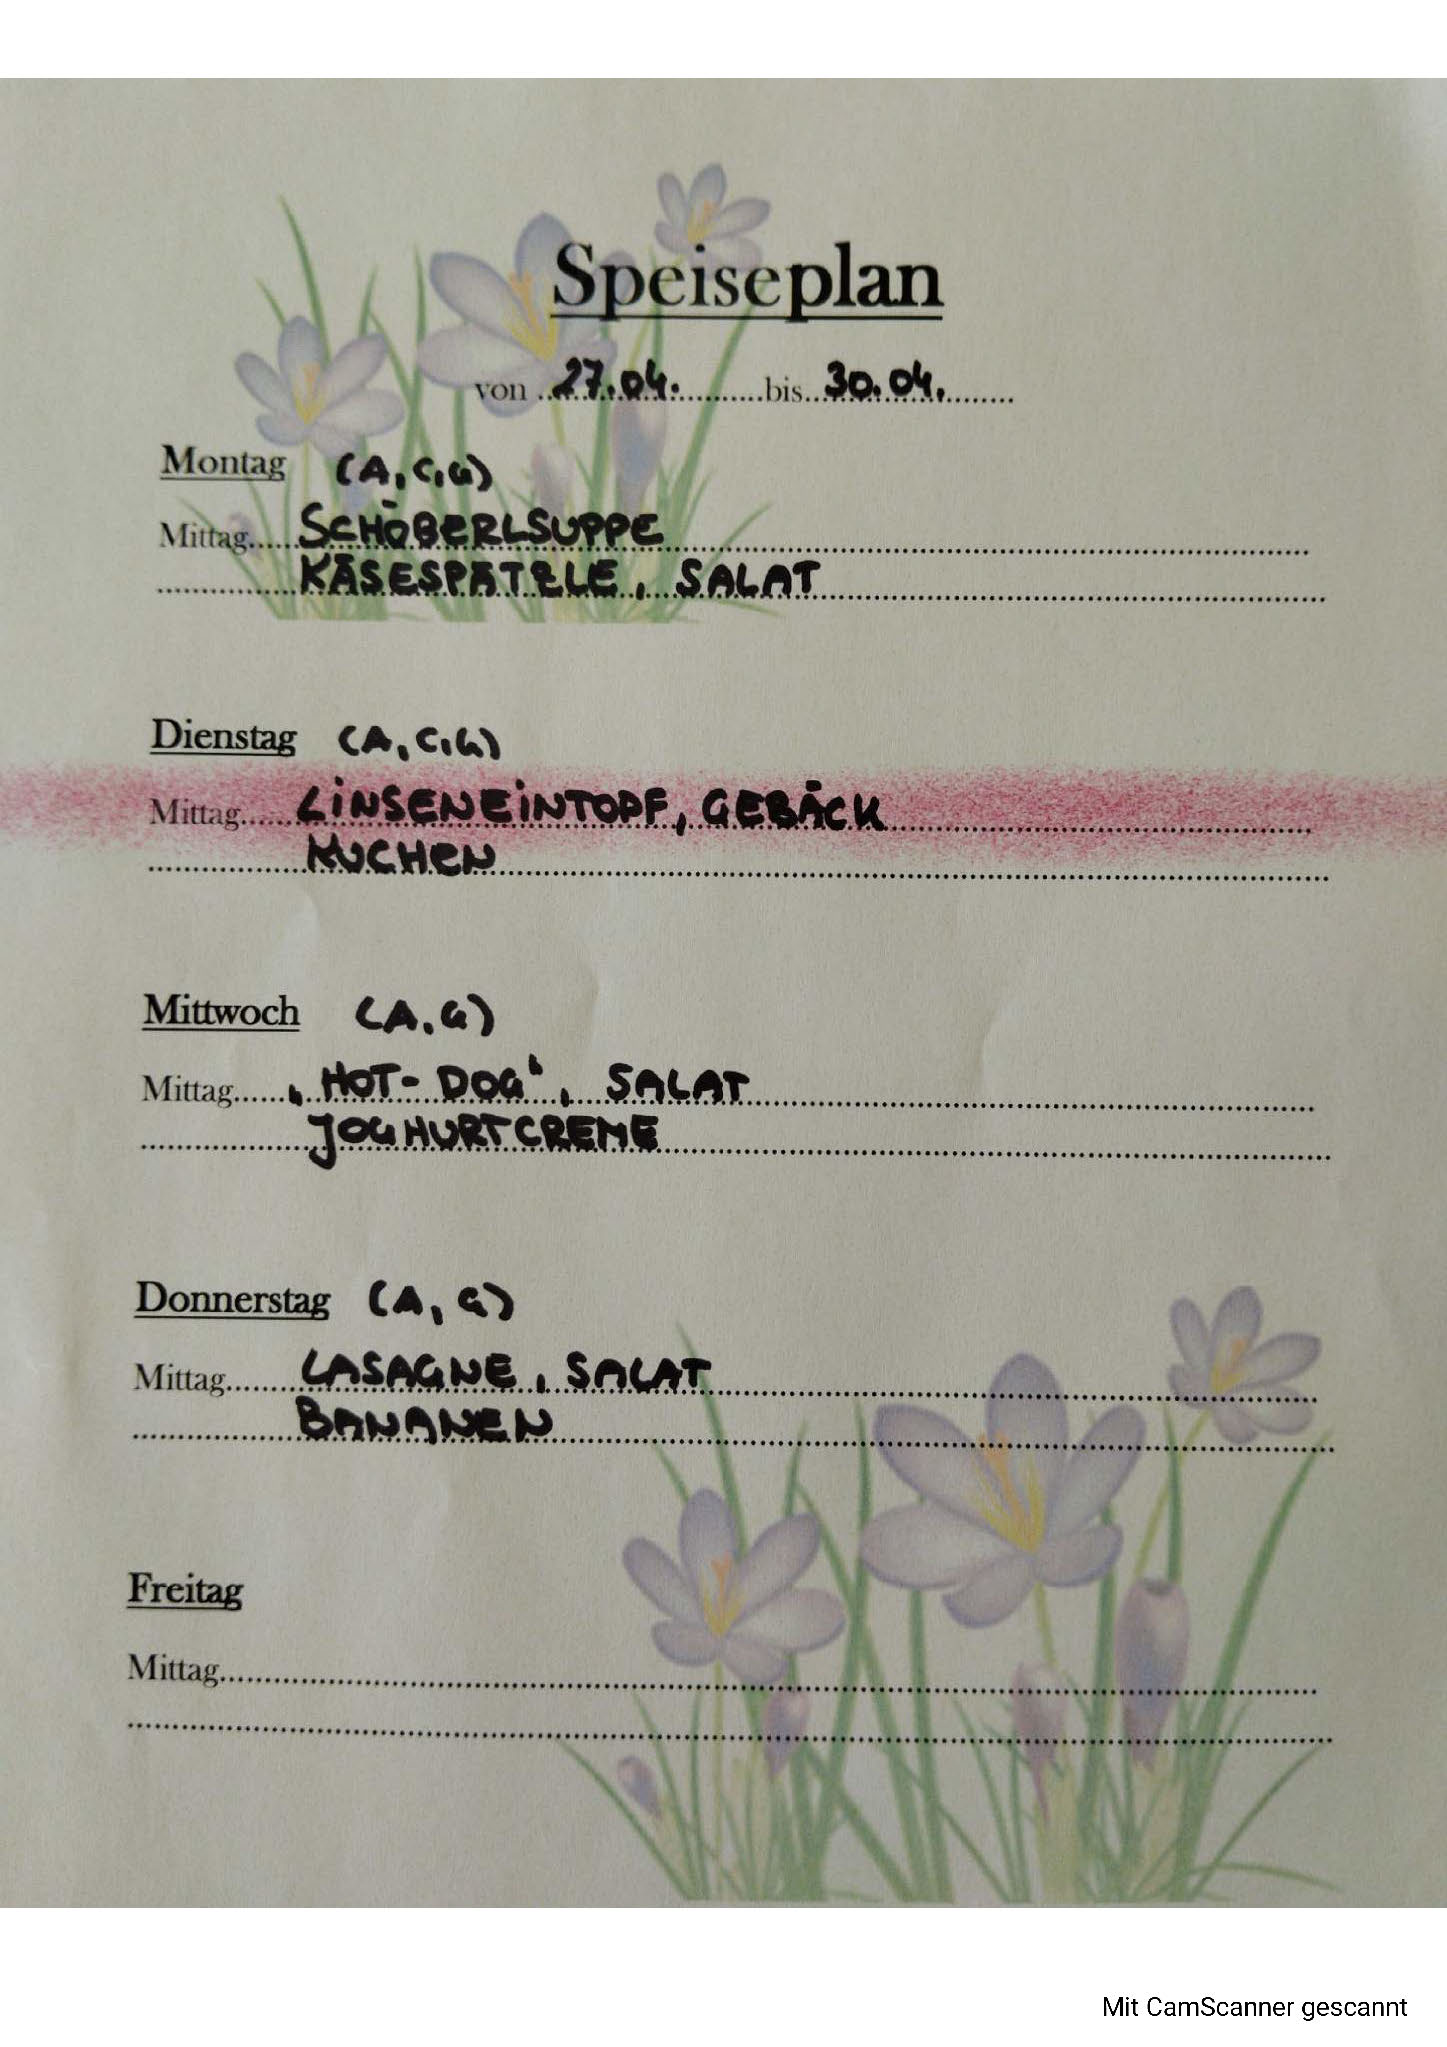 Speiseplan
von 27.04. bis 30.04.
Montag (A, C, G)
Mittag SCHÖBERLSUPPE
KÄSESPÄTZLE, SALAT
Dienstag (A, C, G)
Mittag LINSENEINTOPF, GEBÄCK
KUCHEN
Mittwoch (A, G)
Mittag „HOT-DOG“, SALAT
JOGHURTCREME
Donnerstag (A, G)
Mittag LASAGNE, SALAT
BANANEN
Freitag
Mittag
Mit CamScanner gescannt